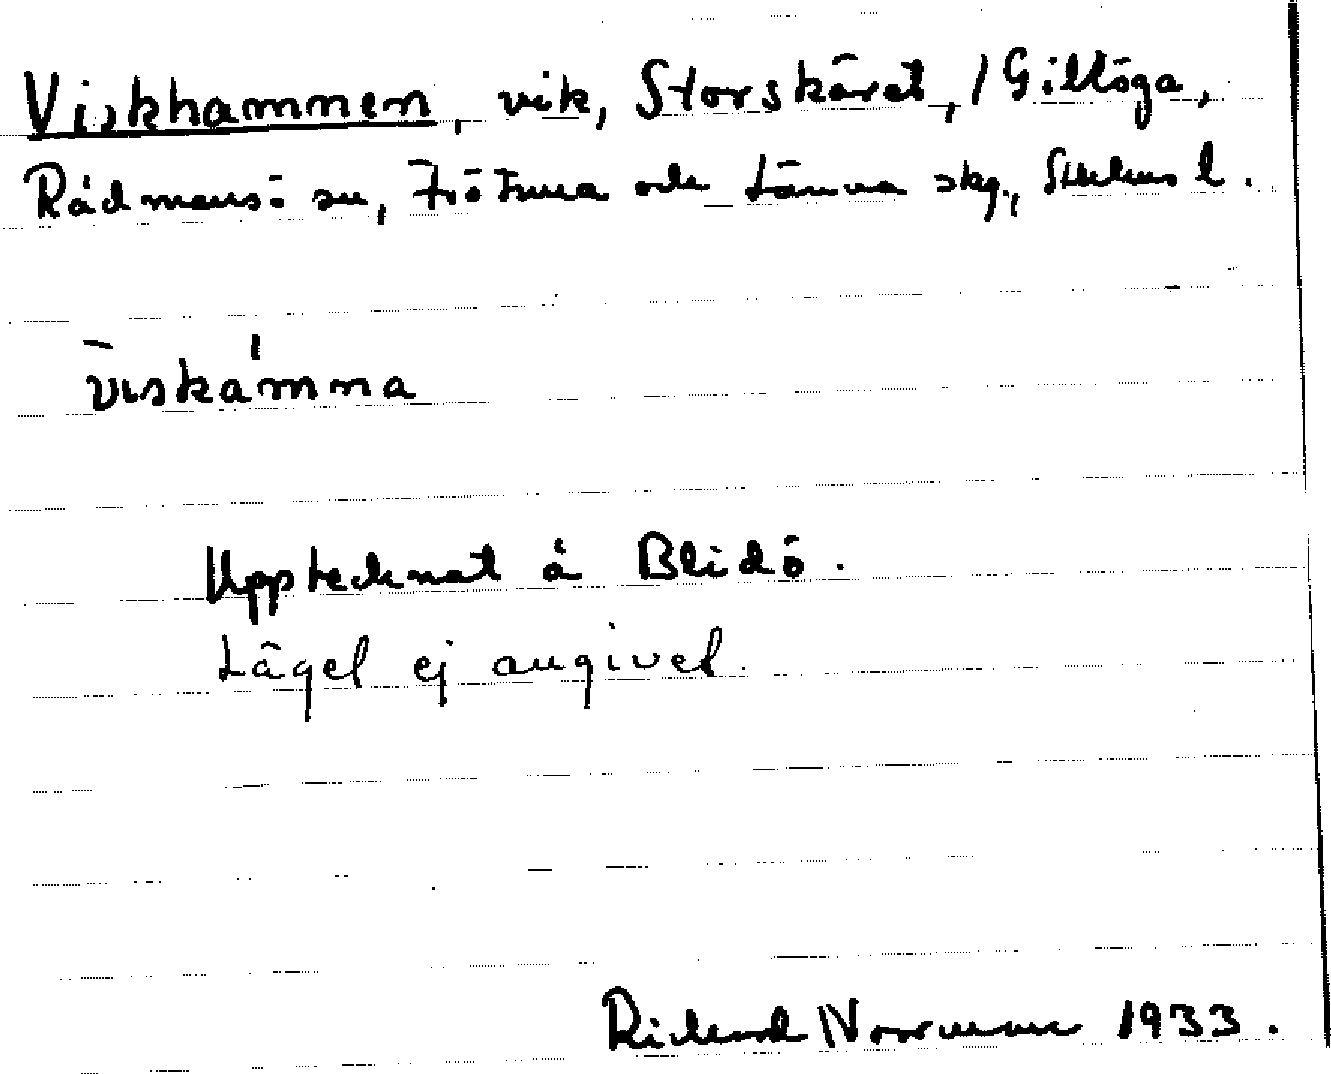 Viskhammen, vik, Storskäret, / Gillöga,
Rådmansö sn, Frötuna och Länna skg., Sthlms l.
viskám̄na
Upptecknat å Blidö.
Läget ej angivet.
Rickard Norrman 1933.